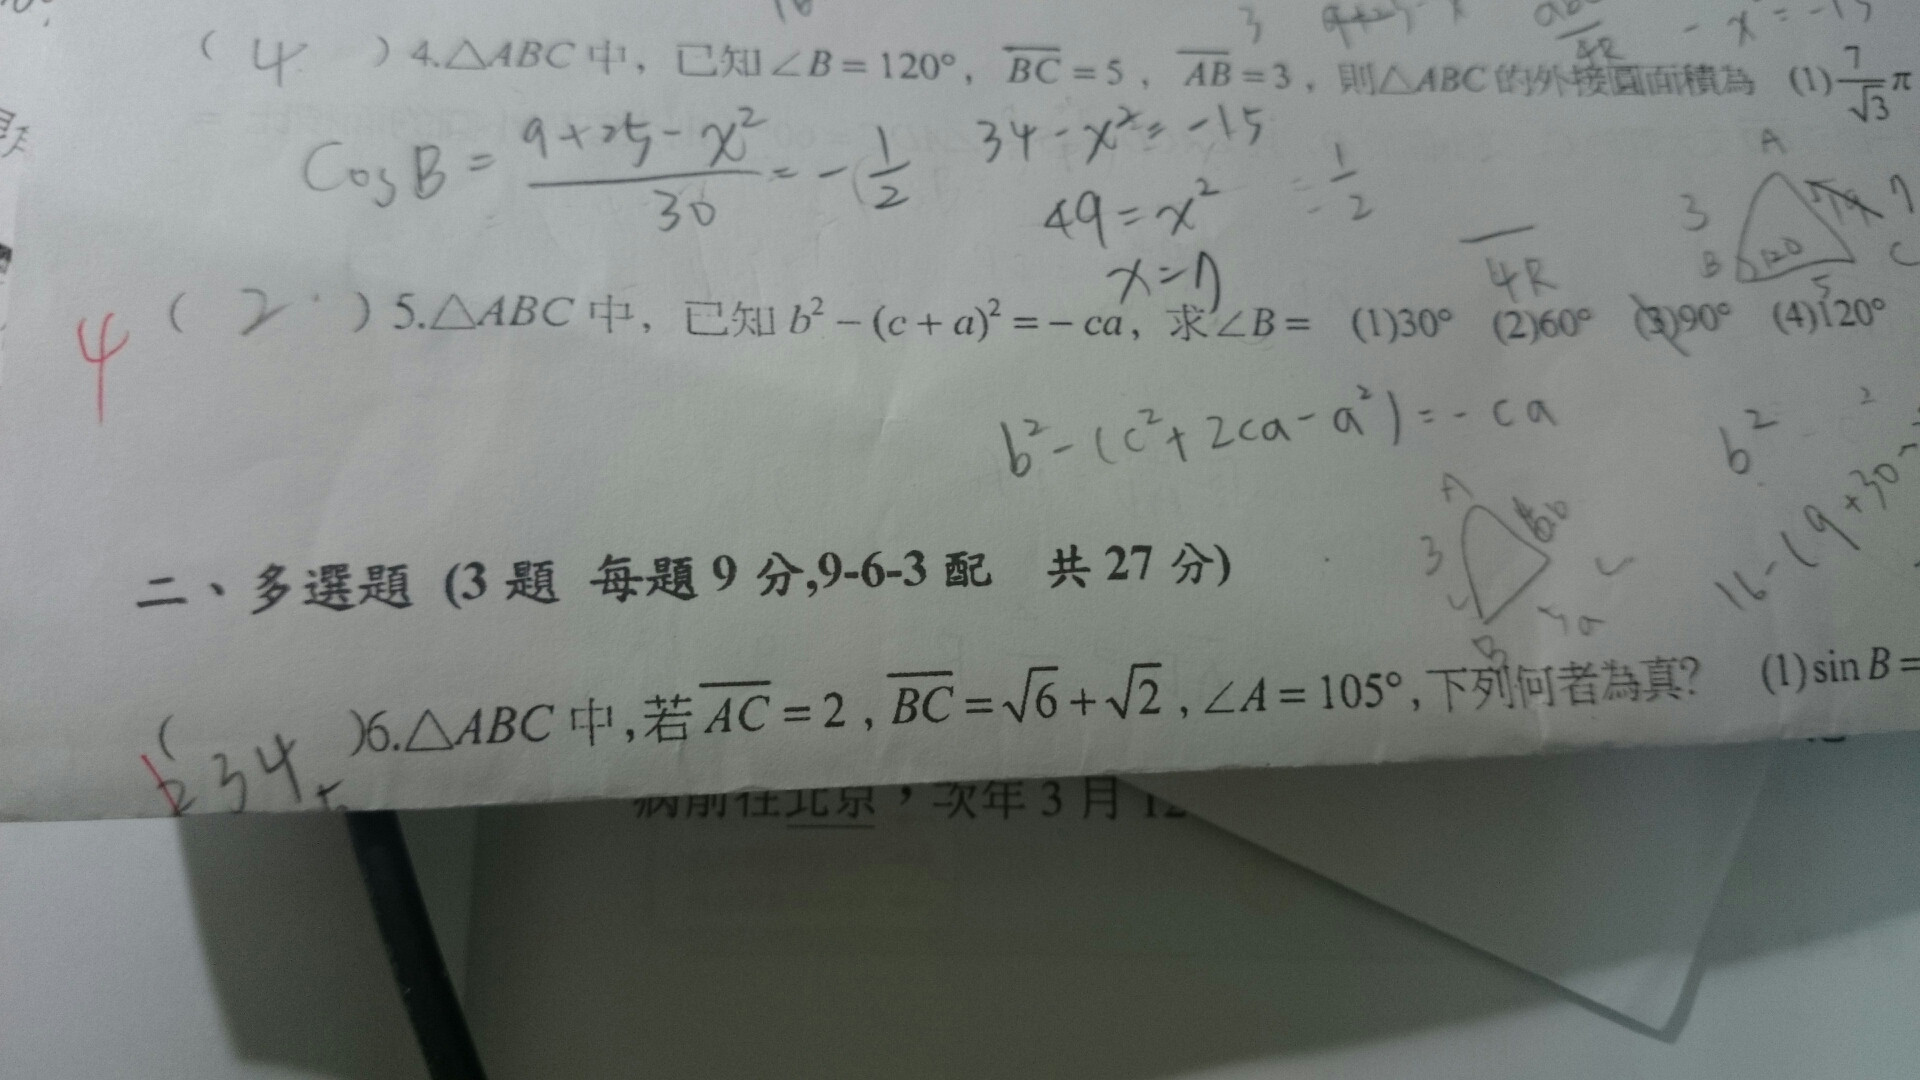 ( 4 ) 4.△ABC中，已知∠B=120°，BC=5，AB=3，則△ABC的外接圓面積為 (1) 7/√3 π
CosB = (9+25-x²)/30 = -1/2
34-x²=-15
49=x²
x=7
4R
A
3
7
B
120
5
C
4
( 2 ) 5.△ABC中，已知b²-(c+a)²=-ca，求∠B= (1)30° (2)60° (3)90° (4)120°
b²-(c²+2ca-a²)=-ca
b²
16-(9+30
A
3
B
二、多選題 (3題 每題9分,9-6-3配 共27分)
( 234 )6.△ABC中,若AC=2,BC=√6+√2,∠A=105°,下列何者為真? (1)sinB=
病前往北京，次年3月12